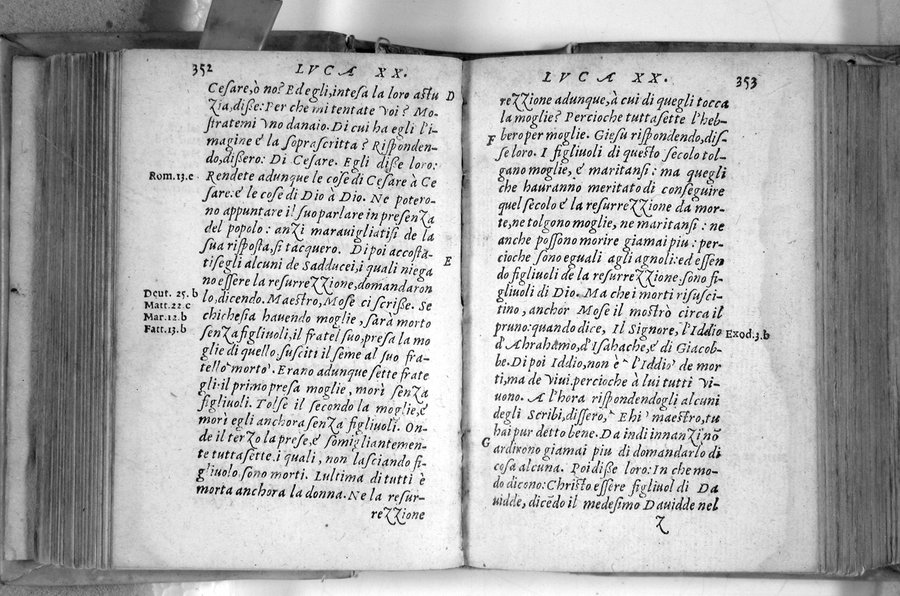 352 LVCA XX.
Cesare, ò no? Ed egli, intesa la loro astu D
zia, disse: Per che mi tentate voi? Mo-
stratemi vno danaio. Di cui ha egli l'i-
magine è la soprascritta? Risponden-
do, dissero: Di Cesare. Egli disse loro:
Rom. 13. c Rendete adunque le cose di Cesare à Ce
sare: e le cose di Dio à Dio. Ne potero-
no appuntare il suo parlare in presenza
del popolo: anzi maravigliatisi de la
sua risposta, si tacquero. Dipoi accosta-
tisegli alcuni de Sadducei, i quali niega E
no essere la resurrezzione, domandaron
Deut. 25. b lo, dicendo. Maestro, Mose ci scrisse. Se
Matt. 22 c chichesia havendo moglie, sarà morto
Mar. 12. b senza figliuoli, il fratel suo, presa la mo
Fatt. 13. b glie di quello, susciti il seme al suo fra-
tello morto. Erano adunque sette frate
gli: il primo presa moglie, morì senza
figliuoli. Tolse il secondo la moglie, e
morì egli anchora senza figliuoli. On-
de il terzo la prese, e somigliantemen-
te tutta sette, i quali, non lasciando fi-
gliuolo, sono morti. L'ultima di tutti è
morta anchora la donna. Ne la resur-
rezzione
LVCA XX. 353
rezzione adunque, à cui di quegli tocca
la moglie? Percioche tutta sette l'heb-
F bero per moglie. Giesu rispondendo, dis-
se loro. I figliuoli di questo secolo tol-
gano moglie, e maritansi: ma quegli
che hauranno meritato di conseguire
quel secolo e la resurrezzione da mor-
te, ne tolgono moglie, ne maritansi: ne
anche possono morire giamai piu: per-
cioche sono eguali agli agnoli: ed essen
do figliuoli de la resurrezzione sono fi-
gliuoli di Dio. Ma che i morti risusci-
tino, anchor Mose il mostrò circa il
pruno: quando dice, Il Signore, l'Iddio Exod. 3. b
d'Abrahamo, d'Isahache, e di Giacob-
be. Dipoi Iddio, non è l'Iddio de mor
ti, ma de vivi, percioche à lui tutti vi-
uono. Al'hora rispondendogli alcuni
degli Scribi, dissero, Ehi maestro, tu
hai pur detto bene. Da indi innanzi nõ
G ardirono giamai piu di domandarlo di
cosa alcuna. Poi disse loro: In che mo-
do dicono: Christo essere figliuol di Da
uidde, dicẽdo il medesimo Dauidde nel
Z